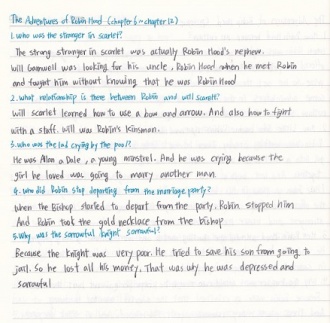 The Adventures of Robin Hood (chapter 6~chapter 12)
1. who was the stranger in scarlet?
The strong stranger in scarlet was actually Robin Hood's nephew.
Will Gamwell was looking for his uncle, Robin Hood when he met Robin
and fought him without knowing that he was Robin Hood
2. what relationship is there between Robin and will scarlet?
Will scarlet learned how to use a bow and arrow. And also how to fight
with a staff. will was Robin's kinsman.
3. who was the lad crying by the pool?
He was Alan a Dale, a young minstrel. And he was crying because the
girl he loved was going to marry another man.
4. who did Robin stop departing from the marriage party?
when the Bishop started to depart from the party, Robin stopped him
And Robin took the gold necklace from the bishop
5. Why was the sorrowful knight sorrowful?
Because the knight was very poor. He tried to save his son from going to
jail. So he lost all his money. That was why he was depressed and
sorrowful